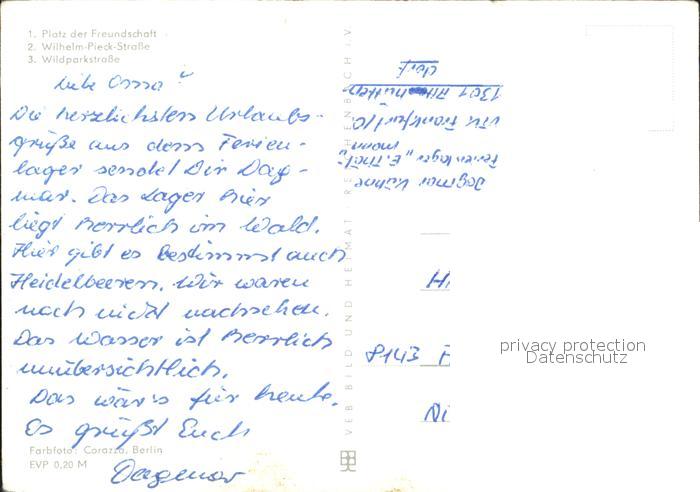 1. Platz der Freundschaft
2. Wilhelm-Pieck-Straße
3. Wildparkstraße
Liebe Oma!
Die herzlichsten Urlaubs-
grüße aus dem Ferien-
lager sendet Dir Dag-
mar. Das Lager hier
liegt herrlich im Wald.
Hier gibt es bestimmt auch
Heidelbeeren. Wir waren
noch nicht nachsehen.
Das Wasser ist herrlich
unübersichtlich.
Das wär's für heute.
Es grüßt Euch
Dagmar
Farbfoto: Corazza, Berlin
EVP 0,20 M
VEB BILD UND HEIMAT REICHENBACH i. V.
Dagmar Kühne
Ferienlager „E. Thäl-
mann"
VTK Frankfurt/O.
1301 Altenhütten
dorf
H
8143
Ni
privacy protection
Datenschutz